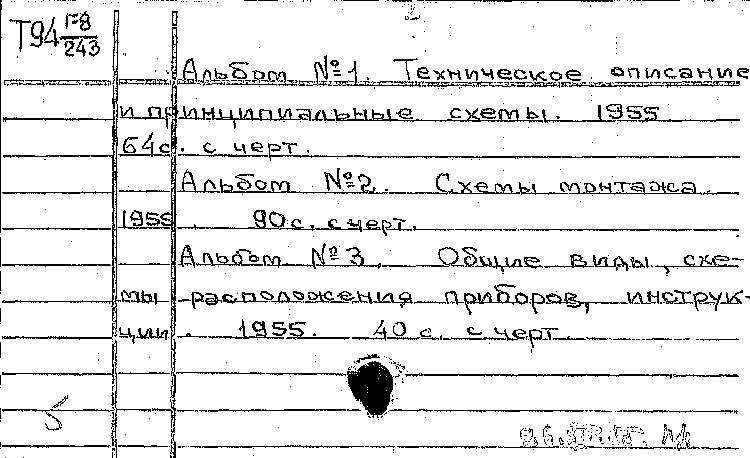 2
Т94 Г-8/243
Альбом №1. Техническое описание
и принципиальные схемы. 1955
64с. с черт.
Альбом №2. Схемы монтажа.
1955. 90с. с черт.
Альбом №3. Общие виды, схе-
мы расположения приборов, инструк-
ции. 1955. 40 с. с черт.
5